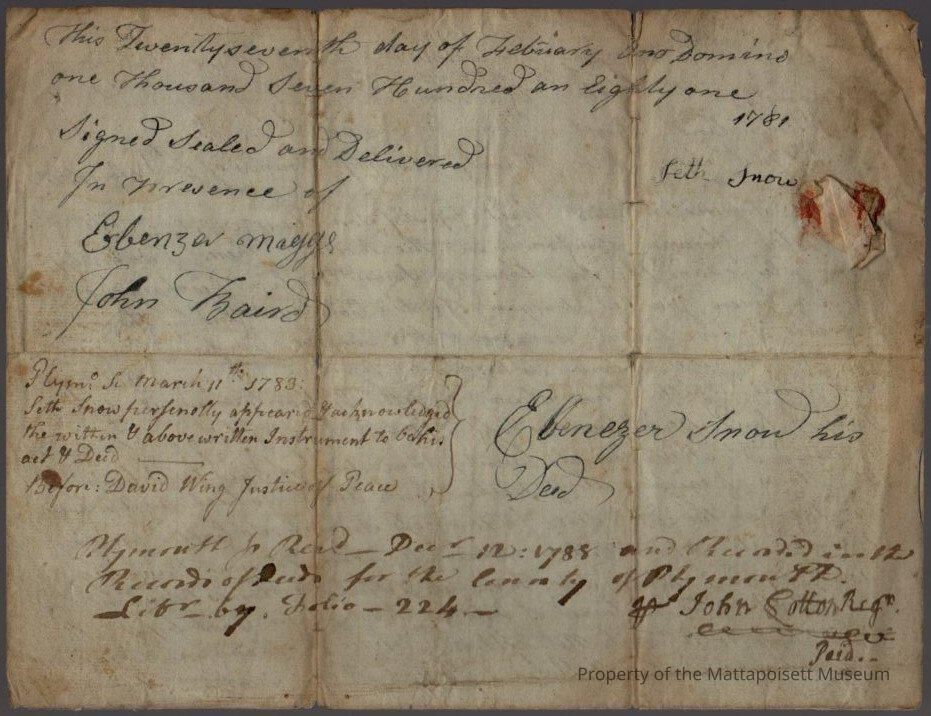 This Twentyseventh day of Febuary Ano Domino
one Thousand Seven Hundred an Eighty one
1781
Signed Sealed and Delivered
In Presence of
Seth Snow
Ebenzer maggs
John Baird
Plymo. Sc March 11th 1783:
Seth Snow personolly appeared & acknowledged
the within & above written Instrument to be his
act & Deed
Before: David Wing Justice of Peace
Ebenezer Snow his
Deed
Plymouth Sc Recd — Decr 12: 1788 and Recorded in the
Records of Deeds for the County of Plymouth.
Libr 67. Folio — 224 —
John Cotton Regr.
Paid..
Property of the Mattapoisett Museum